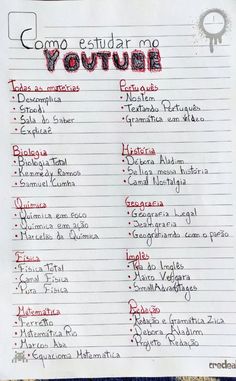 Como estudar no
YOUTUBE
Todas as matérias
• Descomplica
• Stoodi
• Sala do Saber
• Explicaê
Português
• Noslem
• Testando Português
• Gramática em vídeo
Biologia
• Biologia Total
• Kennedy Ramos
• Samuel Cunha
História
• Débora Aladim
• Se liga nessa história
• Canal Nostalgia
Química
• Química em foco
• Química em ação
• Marcelão da Química
Geografia
• Geografia Legal
• Geografiando com o patão
Física
• Física Total
• Canal Física
• Pura Física
Inglês
• Tia do Inglês
• Mairo Vergara
• SmallAdvantages
Matemática
• Ferretto
• Matemática Rio
• Marcos Aba
• Equaciona Matemática
Redação
• Redação e Gramática Zica
• Débora Aladim
• Projeto Redação
credeal